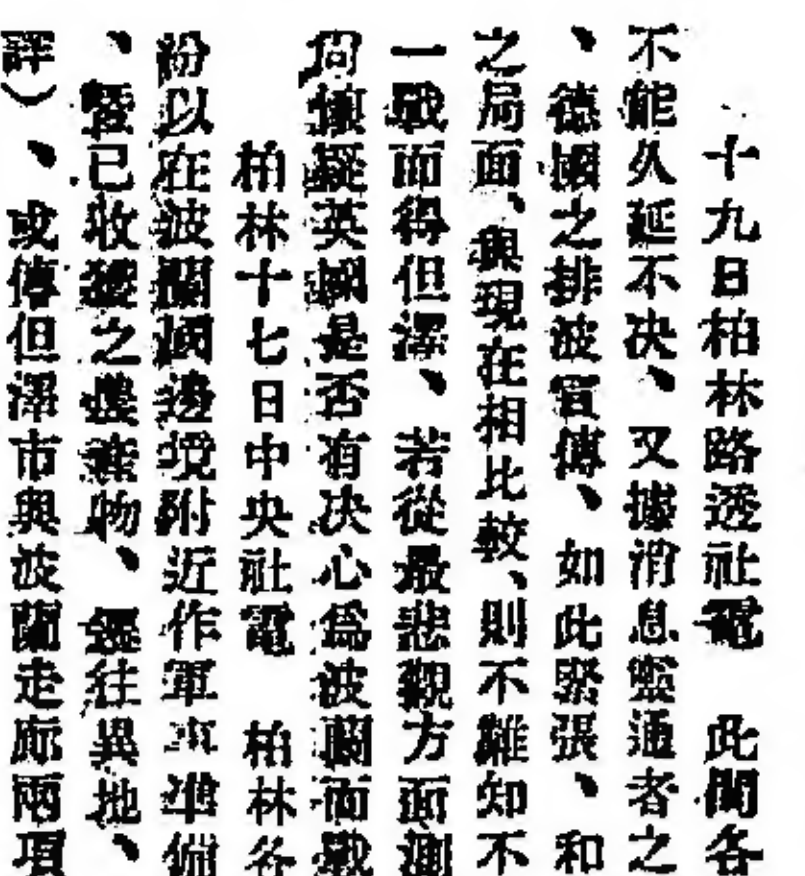 十九日柏林路透社電　此間各
不能久延不决、又據消息靈通者之
、德國之排波宣傳、如此緊張、和
之局面、與現在相比較、則不難知不
一戰而得但澤、若從最悲觀方面測
尚懷疑英國是否有决心爲波蘭而戰
柏林十七日中央社電　柏林各
紛以在波蘭國邊境附近作軍事準備
、暨已收穫之農產物、運往異地、
詳）、或傳但澤市與波蘭走廊兩項